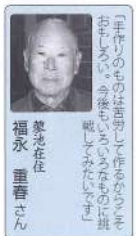 「手作りのものは苦労して作るからこそ
おもしろい。今後もいろいろなものに挑
戦してみたいです」
蓼池在住
福永 重春さん